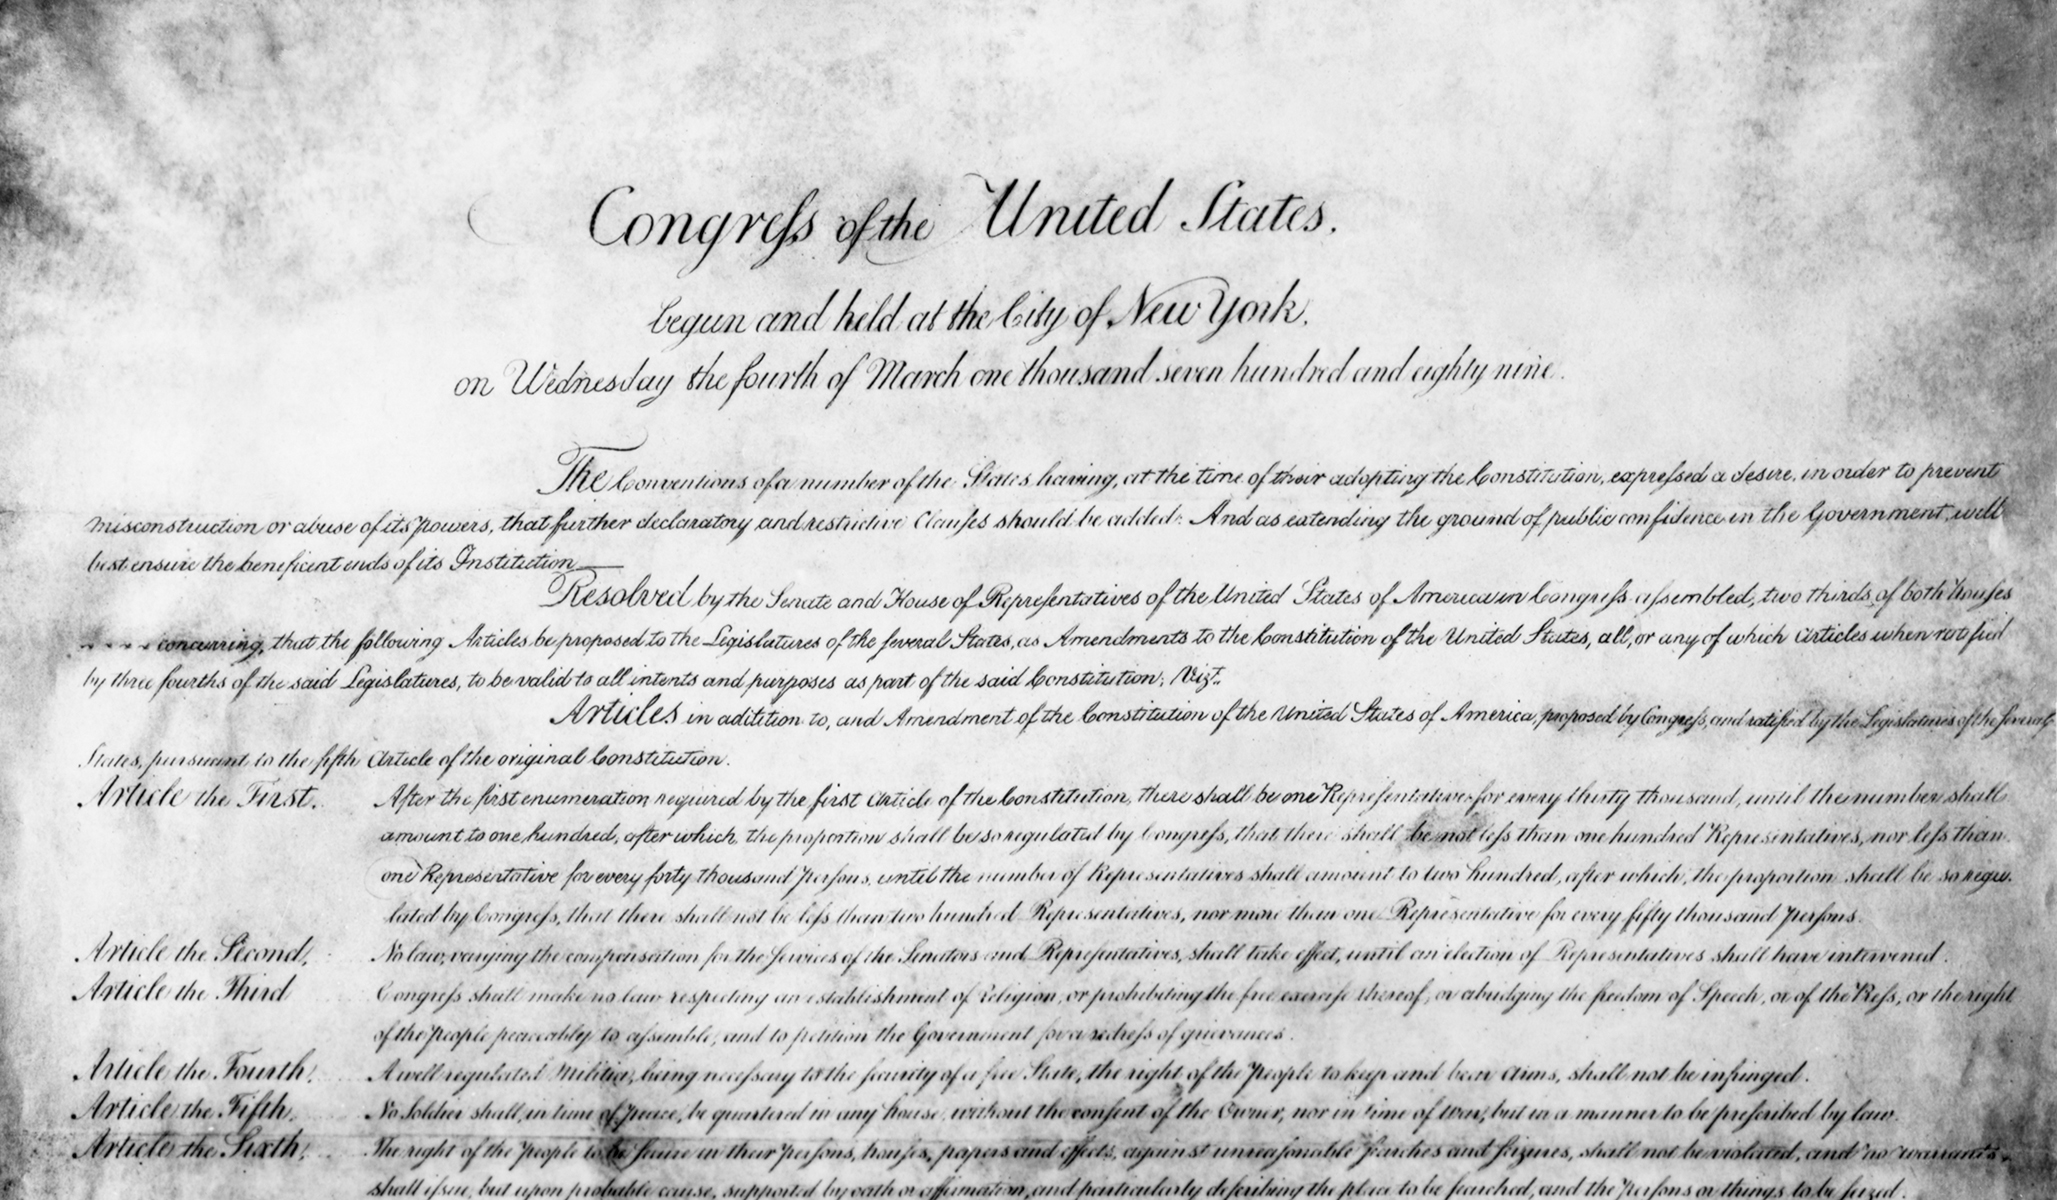 Congress of the United States.
begun and held at the City of New York,
on Wednesday the fourth of March one thousand seven hundred and eighty nine.
The Conventions of a number of the States having, at the time of their adopting the Constitution, expressed a desire, in order to prevent
misconstruction or abuse of its powers, that further declaratory and restrictive clauses should be added: And as extending the ground of public confidence in the Government, will
best ensure the beneficent ends of its Institution
Resolved by the Senate and House of Representatives of the United States of America in Congress assembled, two thirds of both Houses
concurring, that the following Articles be proposed to the Legislatures of the several States, as Amendments to the Constitution of the United States, all, or any of which articles when ratified
by three fourths of the said Legislatures, to be valid to all intents and purposes as part of the said Constitution; Vizt.
Articles in addition to, and Amendment of the Constitution of the United States of America, proposed by Congress, and ratified by the Legislatures of the several
States, pursuant to the fifth Article of the original Constitution.
Article the First. After the first enumeration required by the first Article of the Constitution, there shall be one Representative for every thirty thousand, until the number shall
amount to one hundred, after which, the proportion shall be so regulated by Congress, that there shall be not less than one hundred Representatives, nor less than
one Representative for every forty thousand persons, until the number of Representatives shall amount to two hundred, after which, the proportion shall be so regu-
lated by Congress, that there shall not be less than two hundred Representatives, nor more than one Representative for every fifty thousand persons.
Article the Second. No law, varying the compensation for the services of the Senators and Representatives, shall take effect, until an election of Representatives shall have intervened.
Article the Third Congress shall make no law respecting an establishment of religion, or prohibiting the free exercise thereof, or abridging the freedom of Speech, or of the Press, or the right
of the people peaceably to assemble, and to petition the Government for a redress of grievances.
Article the Fourth. A well regulated Militia, being necessary to the security of a free State, the right of the people to keep and bear Arms, shall not be infringed.
Article the Fifth. No Soldier shall, in time of peace, be quartered in any house, without the consent of the Owner, nor in time of war, but in a manner to be prescribed by law.
Article the Sixth. The right of the people to be secure in their persons, houses, papers and effects, against unreasonable searches and seizures, shall not be violated, and no warrants
shall issue, but upon probable cause, supported by oath or affirmation, and particularly describing the place to be searched, and the persons or things to be seized.